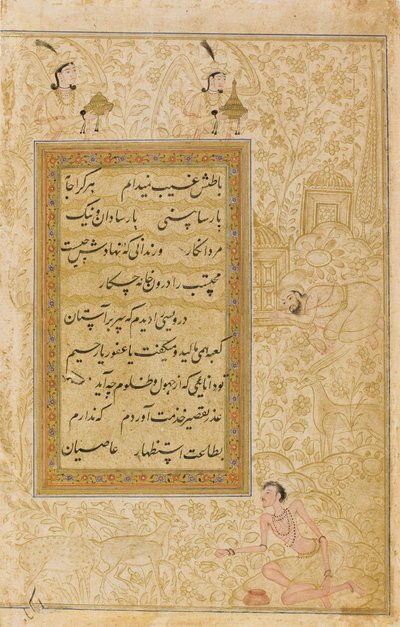 باطنش غیب نمیدانم هرکرا جا
پارسا بینی پارسا دان و نیک
مرد انگار ور ندانی که نهادش چیست
محتسب را درون خانه چکار
درویشی را دیدم که سر بر آستان
کعبه همی مالید و میگفت یا غفور یا رحیم
تو دانایی که از جهول و ظلوم چه آید
عذر تقصیر خدمت آوردم که ندارم
بطاعت استظهار عاصیان